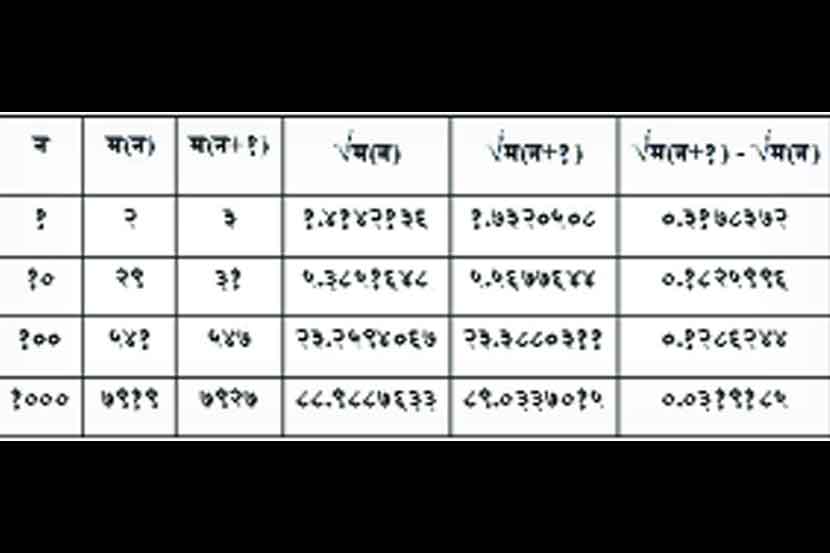 न म(न) म(न+१) √म(न) √म(न+१) √म(न+१) - √म(न)
१ २ ३ १.४१४२१३६ १.७३२०५०८ ०.३१७८३७२
१० २९ ३१ ५.३८५१६४८ ५.५६७७६४४ ०.१८२५९९६
१०० ५४१ ५४७ २३.२५९४०६७ २३.३८८०३११ ०.१२८६२४४
१००० ७९१९ ७९२७ ८८.९८८७६३३ ८९.०३३७०१५ ०.०३१९१८५